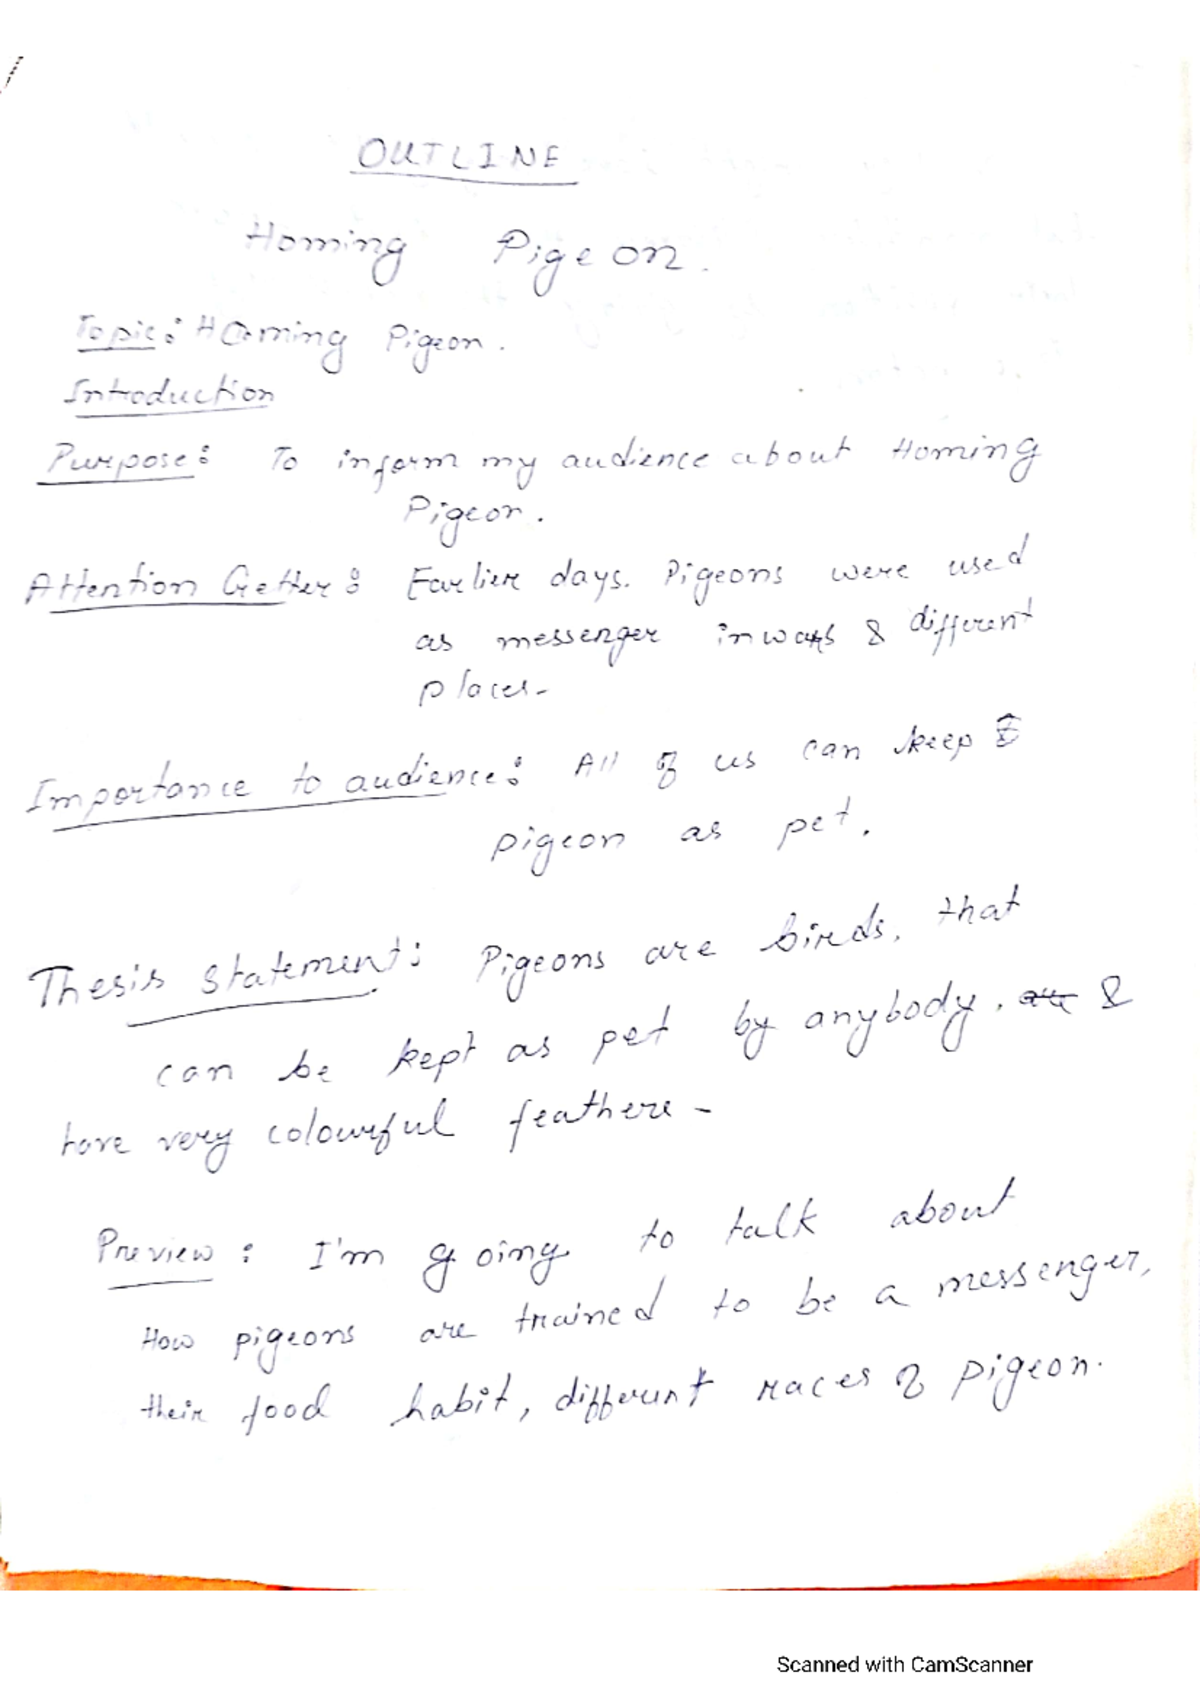 OUTLINE
Homing Pigeon.
Topic: Homing Pigeon.
Introduction
Purpose: To inform my audience about Homing
Pigeon.
Attention Getter: Earlier days. Pigeons were used
as messenger in wars & different
places-
Importance to audience: All of us can keep
pigeon as pet.
Thesis Statement: Pigeons are birds, that
can be kept as pet by anybody. &
have very colourful feathere-
Preview: I'm going to talk about
How pigeons are trained to be a messenger,
their food habit, different races of pigeon.
Scanned with CamScanner